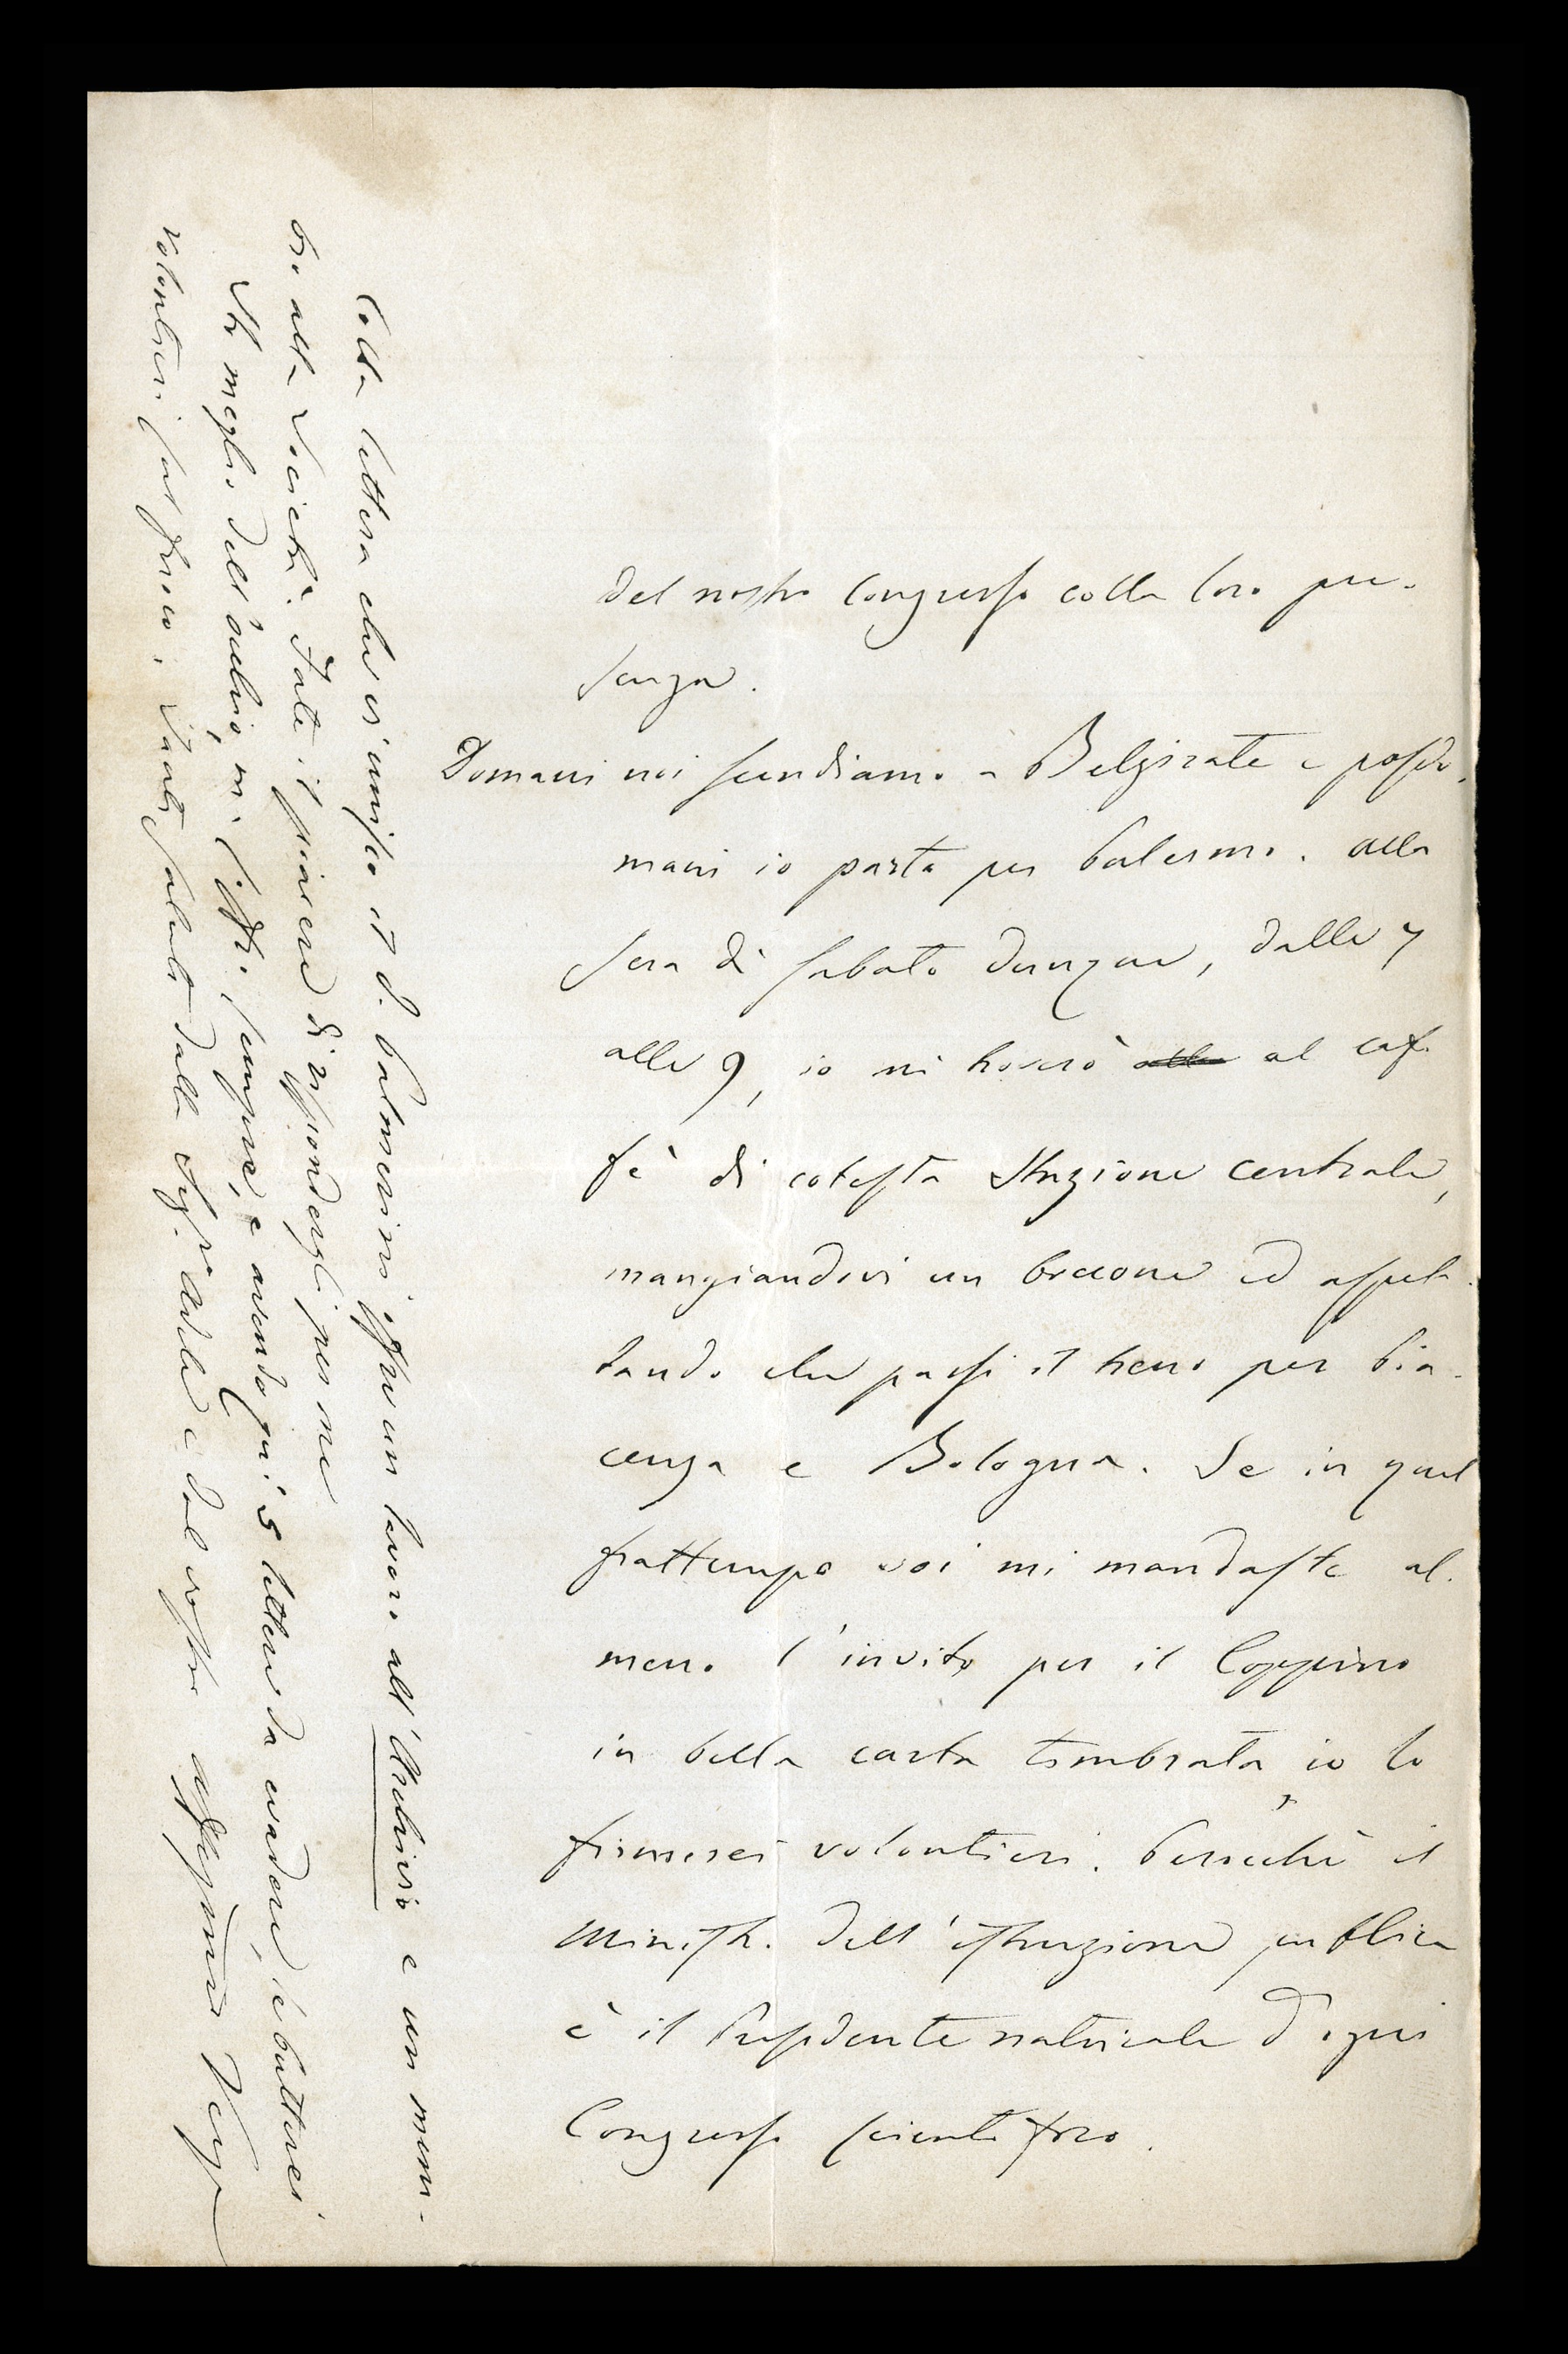 del nostro Congresso colla loro pre-
senza.
Domani noi scendiamo a Belgirate e posdo-
mani io parto per Palermo. Alla
sera di sabato dunque, dalle 7
alle 9, io mi troverò al caf-
fè di cotesta Stazione centrale,
mangiandovi un boccone ed aspet-
tando che passi il treno per Pia-
cenza e Bologna. Se in quel
frattempo voi mi mandaste al-
meno l'invito per il Coppino
in bella carta timbrata, io lo
firmerei volontieri. Perocchè il
Ministro dell'istruzione pubblica
è il Presidente naturale d'ogni
Congresso scientifico.
Colla lettera che v'unisco il d. Palmerini offre un lavoro all'Archivio e un mem-
bro alla Società. Fate il piacere di rispondergli per me
Sto meglio dell'occhio, ma soffro sempre, e avendo qui 5 lettere da evadere, le butterei
volontieri sul fuoco. Tanti saluti dalla Sig.ra Adele e dal vostro affezmo Verga